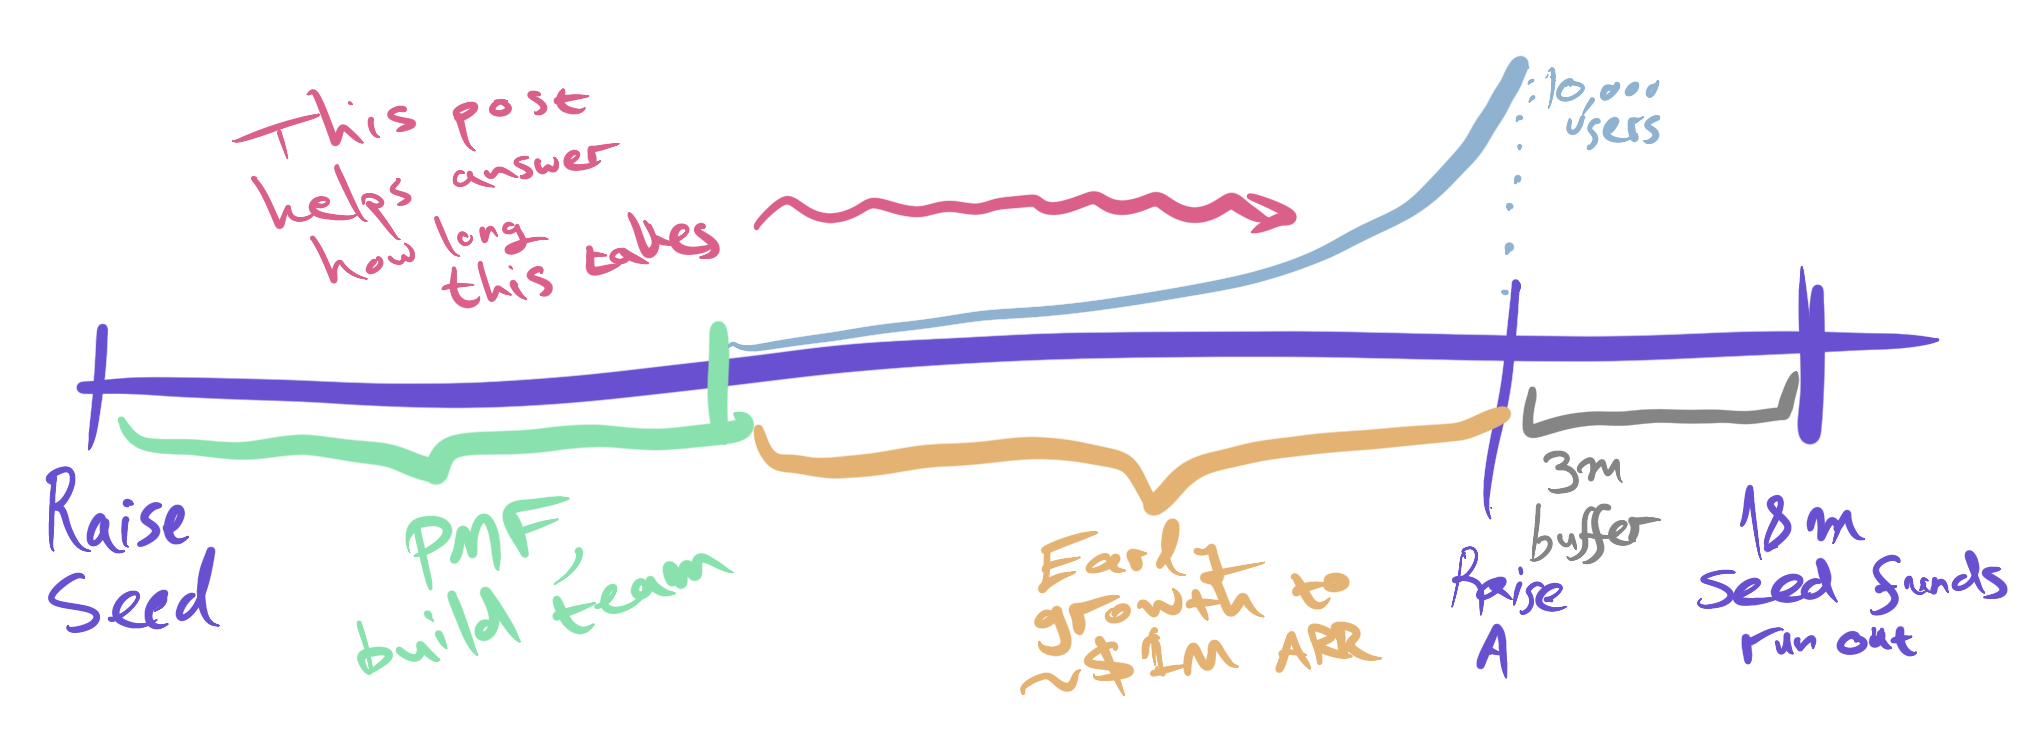 This post
helps answer
how long
this takes
10,000
users
Raise
Seed
PMF,
build team
Early
growth to
~$1M ARR
Raise
A
3m
buffer
18m
seed funds
run out